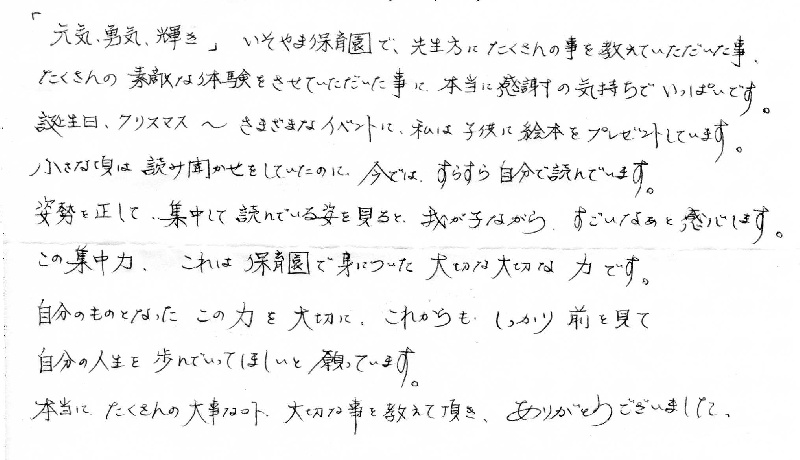 「元気、勇気、輝き」 いそやま保育園で、先生方に たくさんの事を教えていただいた事、
たくさんの 素敵な体験をさせていただいた事に 本当に感謝の気持ちで いっぱいです。
誕生日、クリスマス 〜 さまざまなイベントに、私は 子供に 絵本を プレゼントしています。
小さな頃は 読み聞かせをしていたのに、今では、すらすら 自分で読んでいます。
姿勢を正して、集中して 読んでいる姿を見ると、我が子ながら、すごいなぁと 感心します。
この集中力、 これは 保育園で身についた 大切な大切な 力です。
自分のものとなった この力を 大切に、これからも しっかり 前を見て
自分の人生を 歩んでいってほしいと 願っています。
本当に たくさんの大事な 大切な事を 教えて頂き、 ありがとうございました、